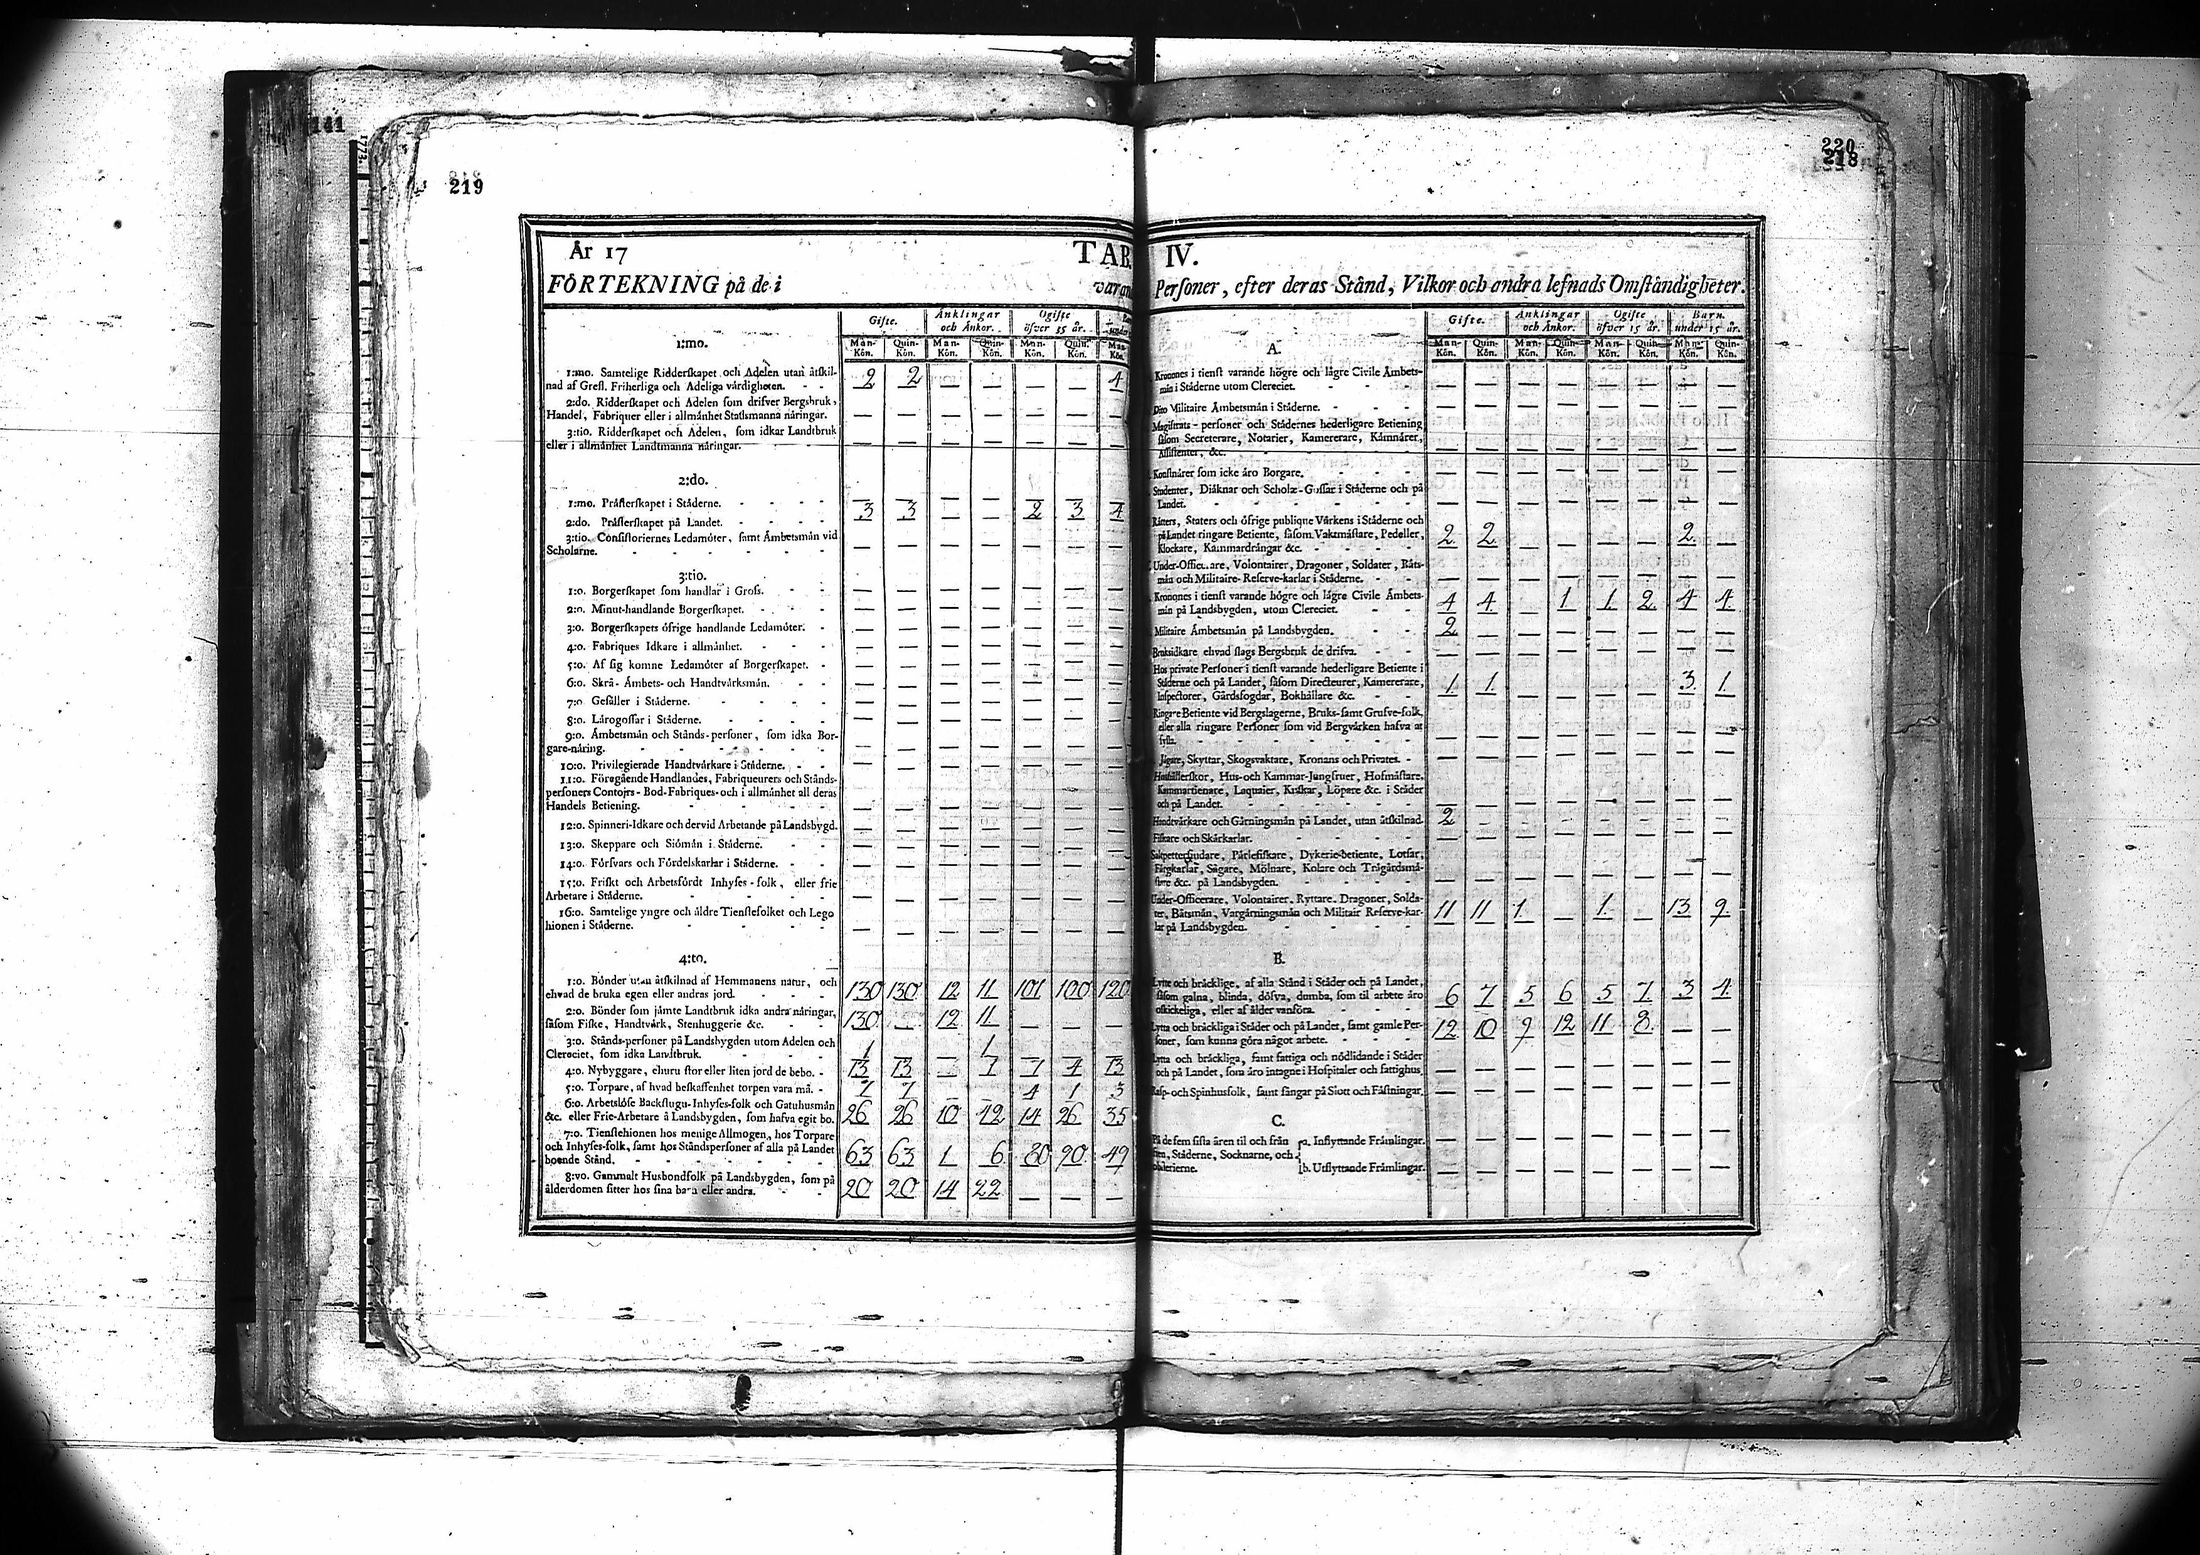 141
1773.
219
År 17
TAB.
FÖRTEKNING på de i varan
Gifte.
Änklingar och Änkor.
Ogifte öfver 15 år.
Man-Kön. Quin-Kön. Man-Kön. Quin-Kön. Man-Kön. Quin-Kön. Man-Kön.
1:mo.
1:mo. Samtelige Ridderskapet och Adelen utan åtskil-
nad af Grefl. Friherliga och Adeliga värdigheten. 2 2 — — — — 4
2:do. Ridderskapet och Adelen som drifver Bergsbruk,
Handel, Fabriquer eller i allmänhet Stadsmanna näringar. — — — — — — —
3:tio. Ridderskapet och Adelen, som idkar Landtbruk
eller i allmänhet Landtmanna näringar. — — — — — — —
2:do.
1:mo. Prästerskapet i Städerne. — — — — — — —
2:do. Prästerskapet på Landet. 3 3 — — 2 3 4
3:tio. Consistoriernes Ledamöter, samt Ämbetsmän vid
Scholarne. — — — — — — —
3:tio.
1:o. Borgerskapet som handlar i Gross. — — — — — — —
2:o. Minut-handlande Borgerskapet. — — — — — — —
3:o. Borgerskapets öfrige handlande Ledamöter. — — — — — — —
4:o. Fabriques Idkare i allmänhet. — — — — — — —
5:o. Af sig komne Ledamöter af Borgerskapet. — — — — — — —
6:o. Skrå-Ämbets- och Handtvärksmän. — — — — — — —
7:o Gesäller i Städerne. — — — — — — —
8:o. Lärogossar i Städerne. — — — — — — —
9:o. Ämbetsmän och Stånds-personer, som idka Bor-
gare-näring. — — — — — — —
10:o. Privilegierade Handtvärkare i Städerne. — — — — — — —
11:o. Föregående Handlandes, Fabriqueurers och Stånds-
personers Contoirs-Bod-Fabriques-och i allmänhet all deras
Handels Betiening. — — — — — — —
12:o. Spinneri-Idkare och dervid Arbetande på Landsbygd. — — — — — — —
13:o. Skeppare och Siömän i Städerne. — — — — — — —
14:o. Försvars och Fördelskarlar i Städerne. — — — — — — —
15:o. Friskt och Arbetsfördt Inhyses-folk, eller frie
Arbetare i Städerne. — — — — — — —
16:o. Samtelige yngre och äldre Tienstefolket och Lego
hionen i Städerne. — — — — — — —
4:to.
1:o. Bönder utan åtskilnad af Hemmanens natur, och
ehvad de bruka egen eller andras jord. 130 130 12 11 101 100 120
2:o. Bönder som jämte Landtbruk idka andra näringar,
såsom Fiske, Handtvärk, Stenhuggerie &c. 130 — 12 11 — — —
3:o. Stånds-personer på Landsbygden utom Adelen och
Clereciet, som idka Landtbruk. 1 — — 1 — — —
4:o. Nybyggare, ehuru stor eller liten jord de bebo. 13 13 — 1 7 4 13
5:o. Torpare, af hvad beskaffenhet torpen vara må. 7 7 — — 4 1 3
6:o. Arbetslöse Backstugu-Inhyses-folk och Gatuhusmän
&c. eller Frie-Arbetare å Landsbygden, som hafva egit bo. 26 26 10 12 14 26 35
7:o. Tienstehionen hos menige Allmogen, hos Torpare
och Inhyses-folk, samt hos Ståndspersoner af alla på Landet
boende Stånd. 63 63 1 6 80 90 49
8:vo. Gammalt Husbondfolk på Landsbygden, som på
ålderdomen sitter hos sina barn eller andra. 20 20 14 22 — — —
220
218
IV.
Personer, efter deras Stånd, Vilkor och andra lefnads Omständigheter.
Gifte.
Änklingar och Änkor.
Ogifte öfver 15 år.
Barn under 15 år.
Man-Kön. Quin-Kön. Man-Kön. Quin-Kön. Man-Kön. Quin-Kön. Man-Kön. Quin-Kön.
A.
Kronones i tienst varande högre och lägre Civile Ämbets-
män i Städerne utom Clereciet. — — — — — — — —
Dito Militaire Ämbetsmän i Städerne. — — — — — — — —
Magistrats-personer och Städernes hederligare Betiening
såsom Secreterare, Notarier, Kamererare, Kämnärer,
Assistenter, &c. — — — — — — — —
Konstnärer som icke äro Borgare. — — — — — — — —
Studenter, Diäknar och Scholæ-Gossar i Städerne och på
Landet. — — — — — — — —
Rätters, Staters och öfrige publique Värkens i Städerne och
på Landet ringare Betiente, såsom Vaktmästare, Pedeller,
Klockare, Kammardrängar &c. 2 2 — — — — 2 —
Under-Officerare, Volontairer, Dragoner, Soldater, Båts-
män och Militaire-Reserve-karlar i Städerne. — — — — — — — —
Kronones i tienst varande högre och lägre Civile Ämbets-
män på Landsbygden, utom Clereciet. 4 4 — 1 1 2 4 4
Militaire Ämbetsmän på Landsbygden. 2 — — — — — — —
Bruksidkare ehvad slags Bergsbruk de drifva. — — — — — — — —
Hos private Personer i tienst varande hederligare Betiente i
Städerne och på Landet, såsom Directeurer, Kamererare,
Inspectorer, Gårdsfogdar, Bokhållare &c. 1 1 — — — — 3 1
Ringare Betiente vid Bergslagerne, Bruks-samt Grufve-folk,
eller alla ringare Personer som vid Bergvärken hafva at
syssla. — — — — — — — —
Jägare, Skyttar, Skogsvaktare, Kronans och Privates. — — — — — — — —
Hushållerskor, Hus-och Kammar-Jungfruer, Hofmästare,
Kammartienare, Laquaier, Kuskar, Löpare &c. i Städer
och på Landet. — — — — — — — —
Handtvärkare och Gärningsmän på Landet, utan åtskilnad. 2 — — — — — — —
Fiskare och Skärkarlar. — — — — — — — —
Salpettersiudare, Pärlefiskare, Dykerie-betiente, Lotsar,
Färgkarlar, Sågare, Mölnare, Kolare och Trägårdsmä-
stare &c. på Landsbygden. — — — — — — — —
Under-Officerare, Volontairer, Ryttare, Dragoner, Solda-
ter, Båtsmän, Vargärningsmän och Militair Reserve-kar-
lar på Landsbygden. 11 11 1 — 1 — 13 9
B.
Lytte och bräcklige, af alla Stånd i Städer och på Landet,
såsom galna, blinda, döfva, dumba, som til arbete äro
oskickeliga, eller af ålder vanföra. 6 7 5 6 5 7 3 4
Lytta och bräckliga i Städer och på Landet, samt gamle Per-
soner, som kunna göra något arbete. 12 10 9 12 11 8 — —
Lytta och bräckliga, samt fattiga och nödlidande i Städer
och på Landet, som äro intagne i Hospitaler och fattighus. — — — — — — — —
Rasp-och Spinhusfolk, samt fångar på Slott och Fästningar. — — — — — — — —
C.
På de fem sista åren til och från a. Inflyttande Främlingar. — — — — — — — —
Städerne, Socknarne, och
b. Utflyttande Främlingar. — — — — — — — —